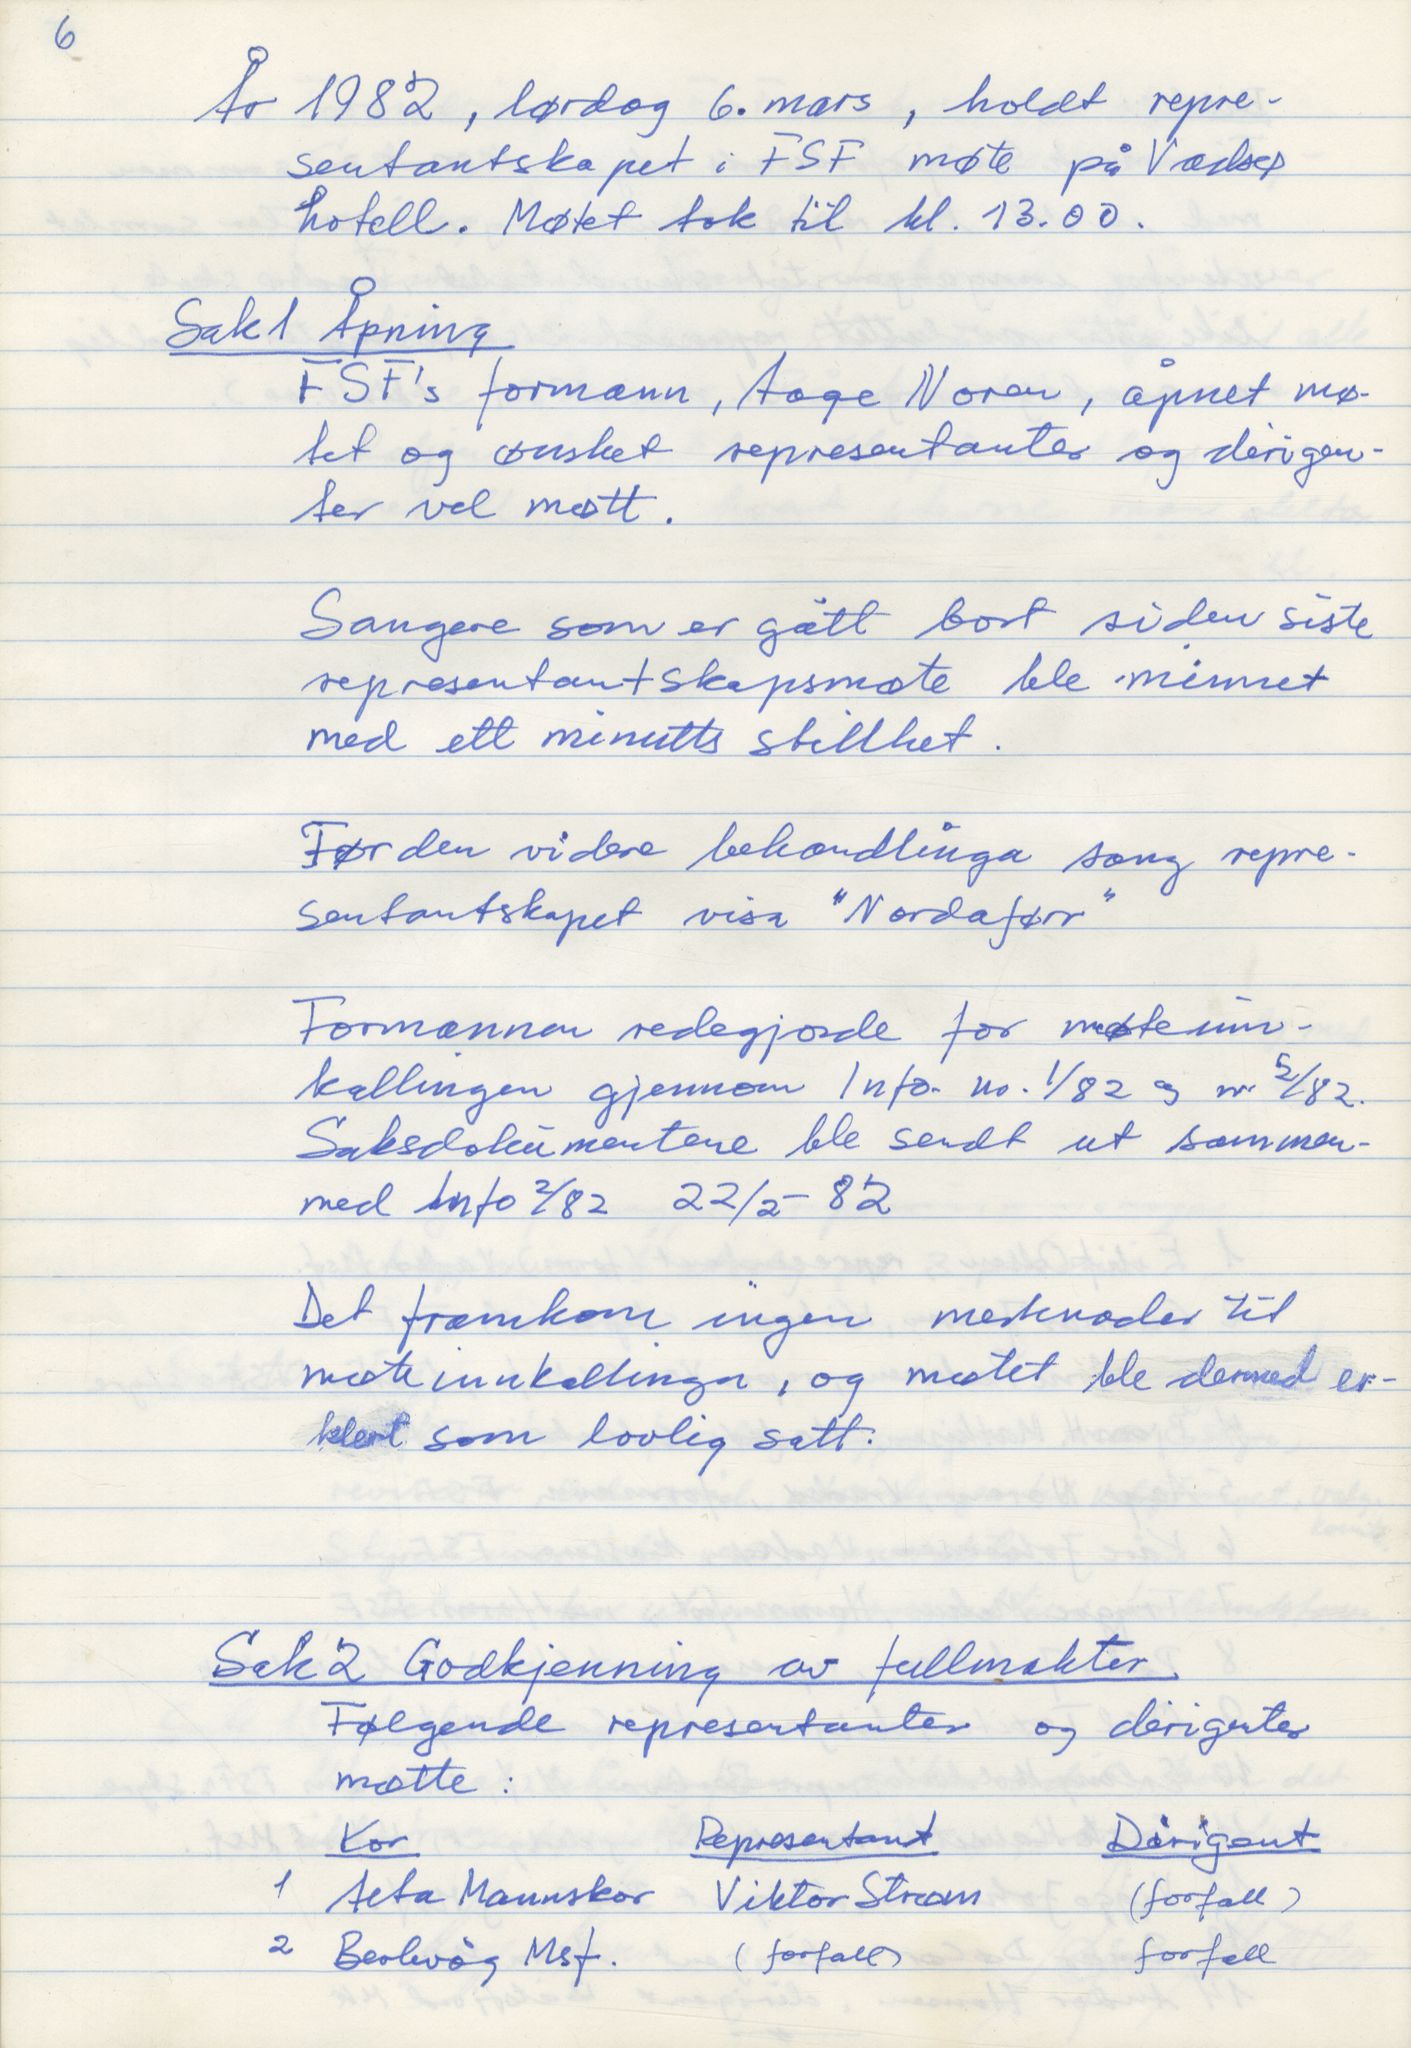 6
År 1982, lørdag 6. mars, holdt repre-
sentantskapet i FSF møte på Vadsø
hotell. Møtet tok til kl. 13.00.
Sak 1 Åpning
FSF's formann, Aage Noren, åpnet mø-
tet og ønsket representanter og dirigen-
ter vel møtt.
Sangere som er gått bort siden siste
representantskapsmøte ble minnet
med ett minutts stillhet.
Før den videre behandlinga sang repre-
sentantskapet visa "Nordaførr"
Formannen redegjorde for møteinn-
kallingen gjennom Info. nr. 1/82 og nr. 2/82.
Saksdokumentene ble sendt ut sammen-
med Info 2/82 22/2-82
Det framkom ingen merknader til
møteinnkallinga, og møtet ble dermed er-
klært som lovlig satt.
Sak 2 Godkjenning av fullmakter.
Følgende representanter og dirigenter
møtte:
Kor Representant Dirigent
1 Alta Mannskor Viktor Strøm (forfall)
2 Berlevåg Msf. (forfall) forfall